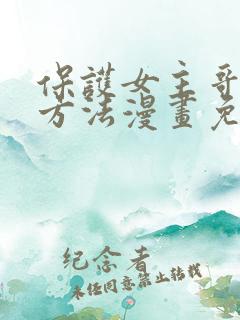 保護女主哥
方法漫畫免
纪念者
未经同意禁止转载